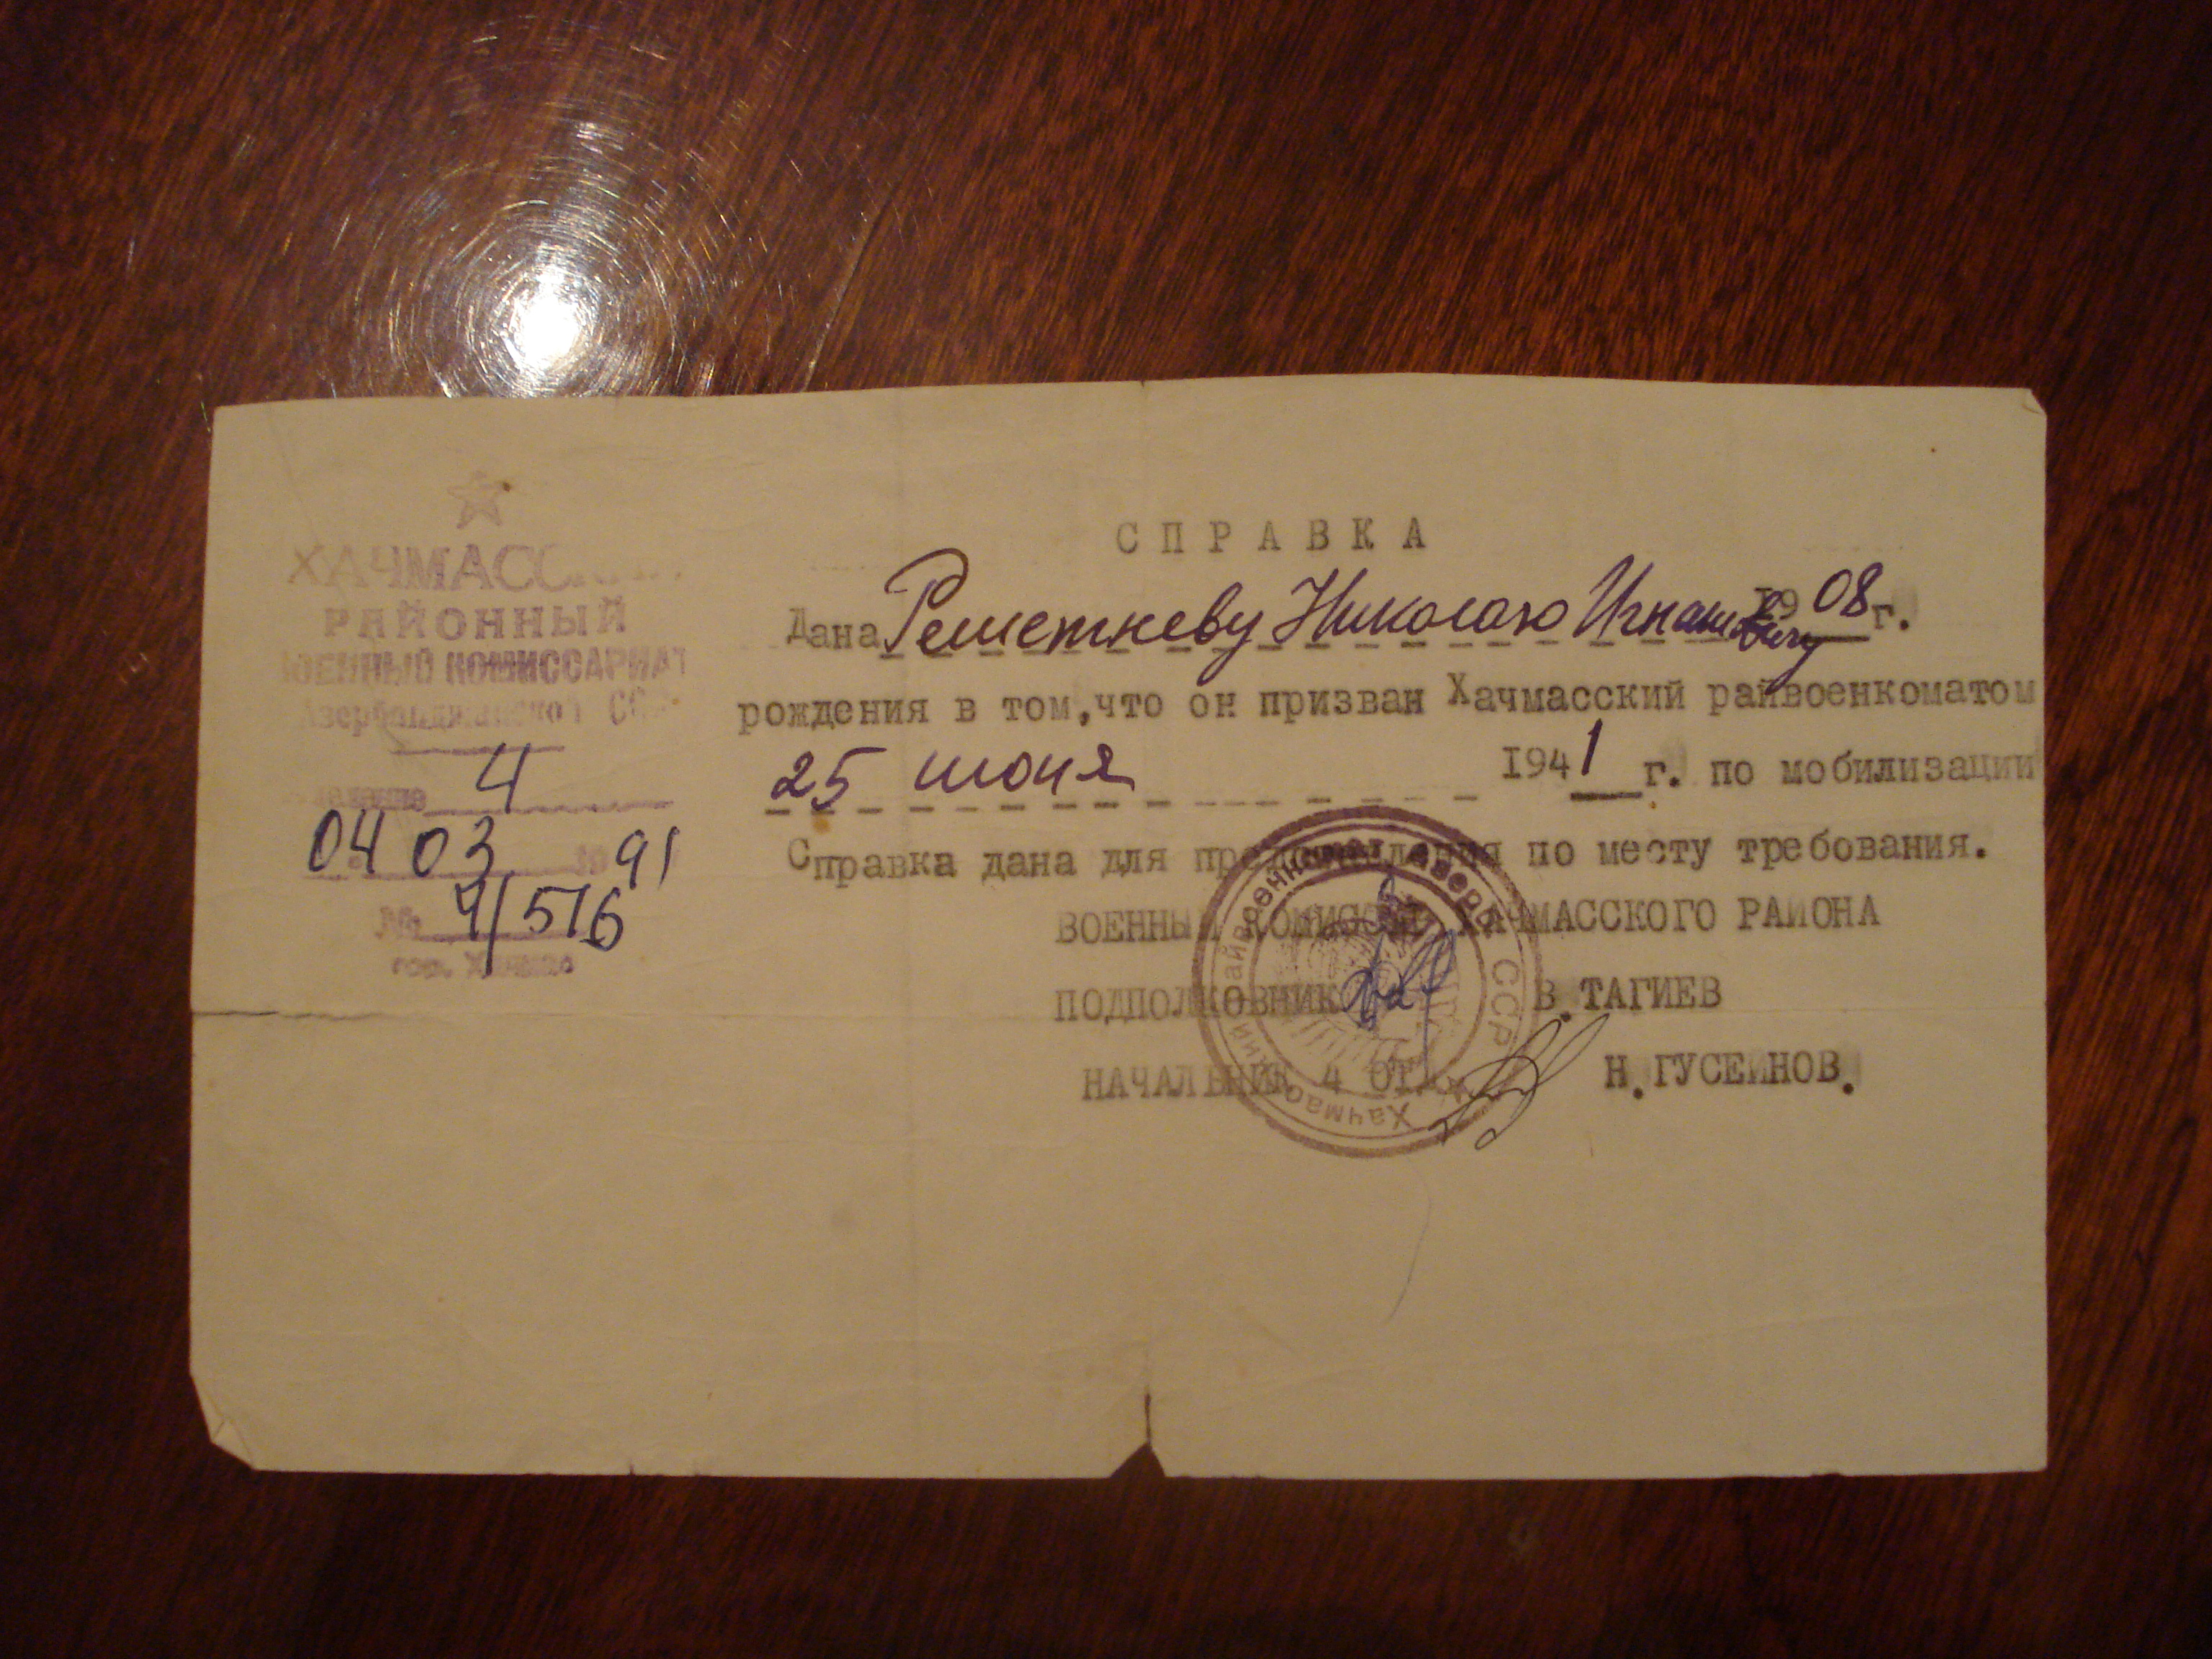 ХАЧМАСС
РАЙОННЫЙ
ВОЕННЫЙ КОМИССАРИАТ
Азербайджанской ССР
4
04 03 1991
№ 4/516
гор. Хачмас
СПРАВКА
Дана Решеткеву Николаю Игнатьевичу 1908 г.
рождения в том,что он призван Хачмасский райвоенкоматом
25 июня 1941 г. по мобилизации
Справка дана для предъявления по месту требования.
ВОЕННЫЙ КОМИССАР ХАЧМАССКОГО РАЙОНА
ПОДПОЛКОВНИК В.ТАГИЕВ
НАЧАЛЬНИК 4 ОТД. Н.ГУСЕЙНОВ.
Хачмасский райвоенкомат Азерб. ССР